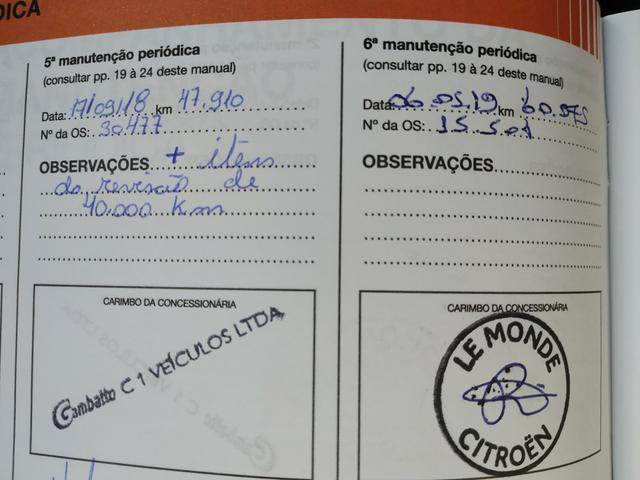 DICA
5ª manutenção periódica
(consultar pp. 19 à 24 deste manual)
Data: 17/09/18 km 47.910
Nº da OS: 30477
OBSERVAÇÕES + itens
da revisão de
40.000 km
CARIMBO DA CONCESSIONÁRIA
Gambatto C 1 VEÍCULOS LTDA
6ª manutenção periódica
(consultar pp. 19 à 24 deste manual)
Data: 06.05.19 km
Nº da OS: 15.501
OBSERVAÇÕES
CARIMBO DA CONCESSIONÁRIA
LE MONDE
CITROËN